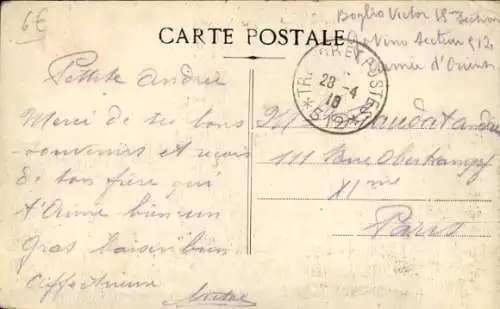 6€
Boglio Victor 15e Section
CARTE POSTALE
Section 512
Armée d'Orient
TRÉSOR ET POSTES
28-4
18
*512*
Petite André
Merci de tes bons
souvenirs et reçois
de ton frère qui
t'aime bien un
gros baiser bien
affectueux
Victor
111 Rue Oberkampf
XIme
Paris